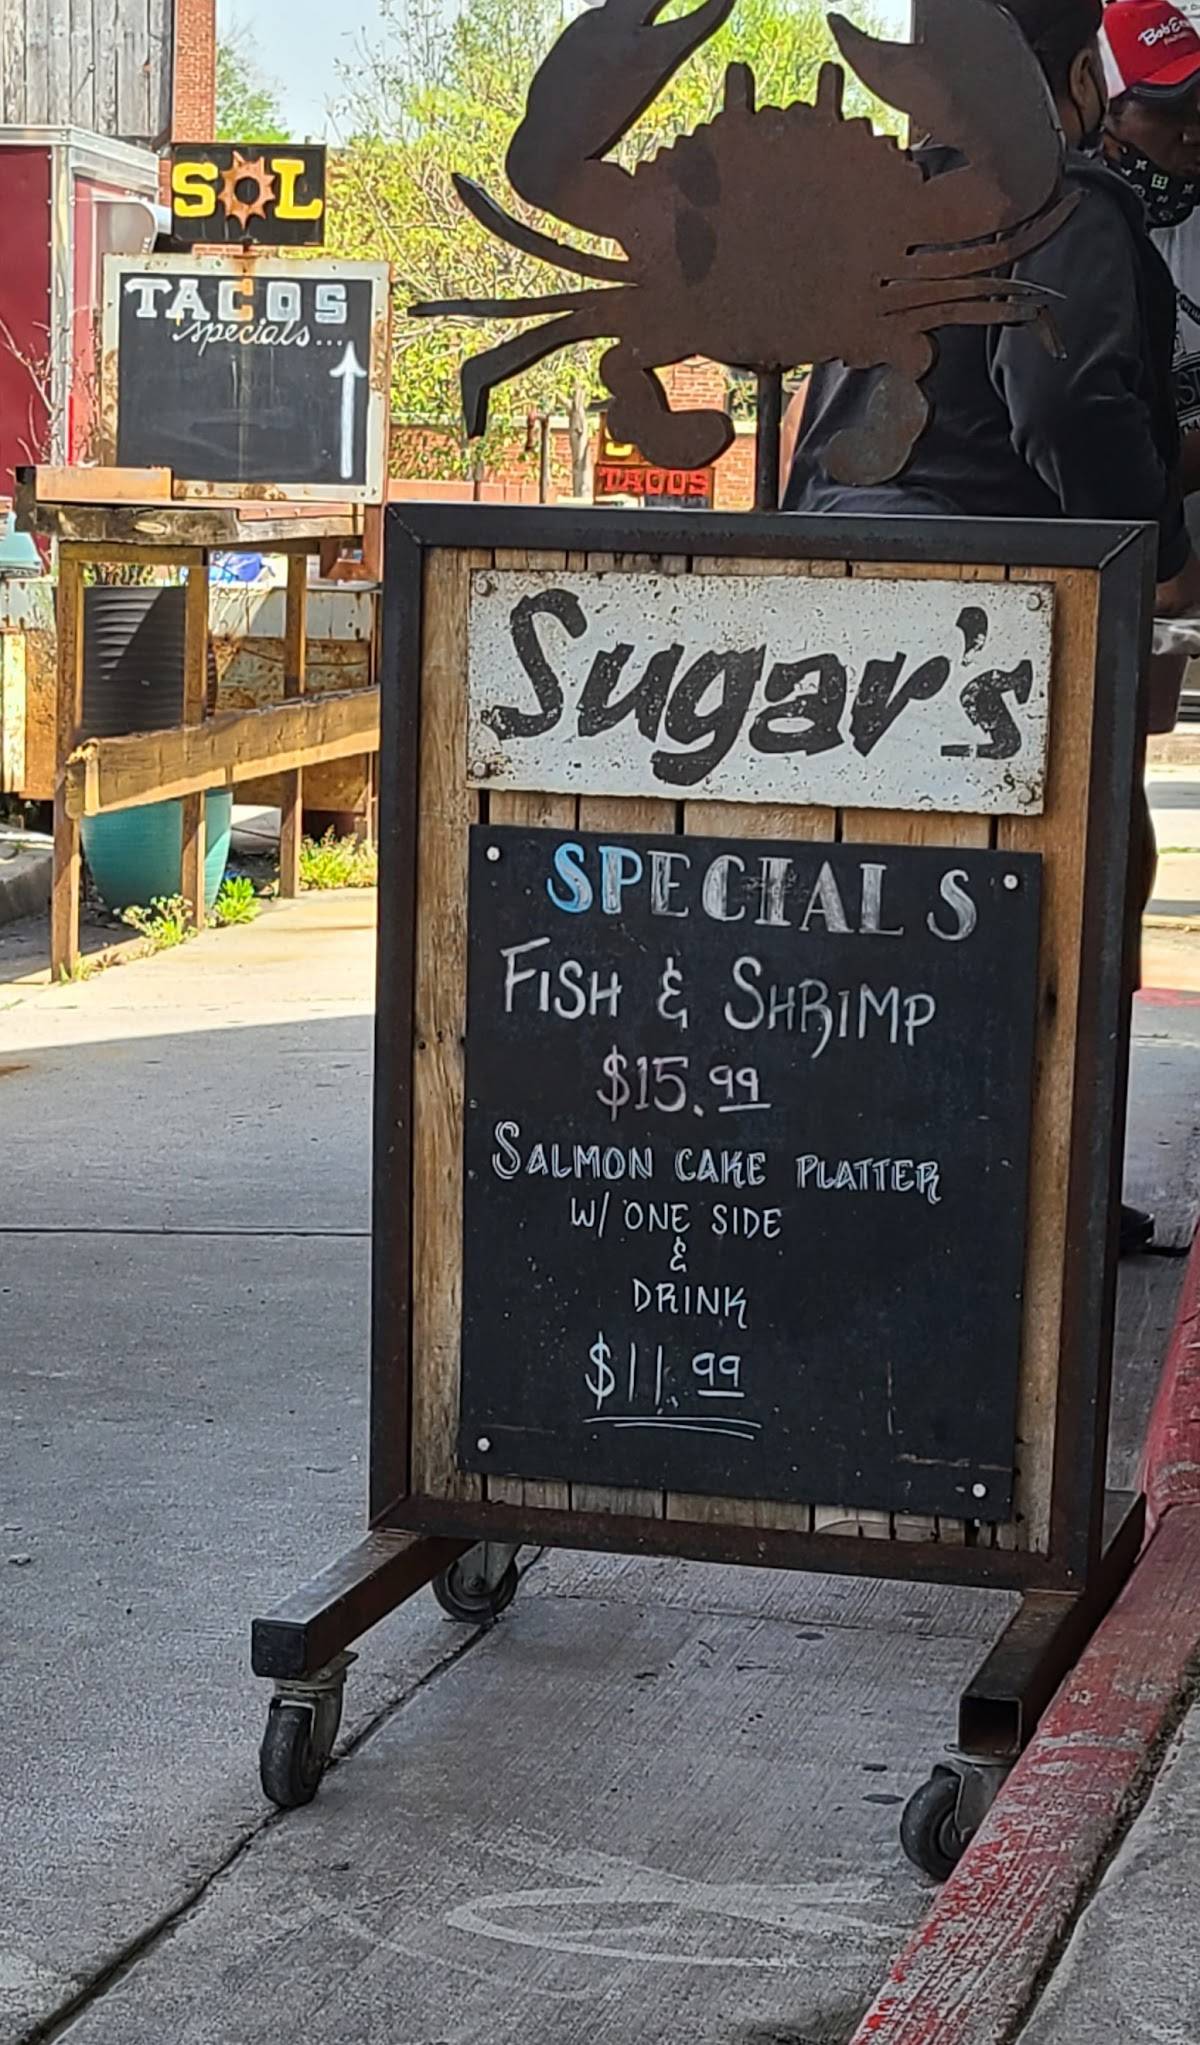 SOL
TACOS
specials...
TACOS
Sugar's
SPECIALS
FISH & SHRIMP
$15.99
SALMON CAKE PLATTER
W/ ONE SIDE
&
DRINK
$11.99